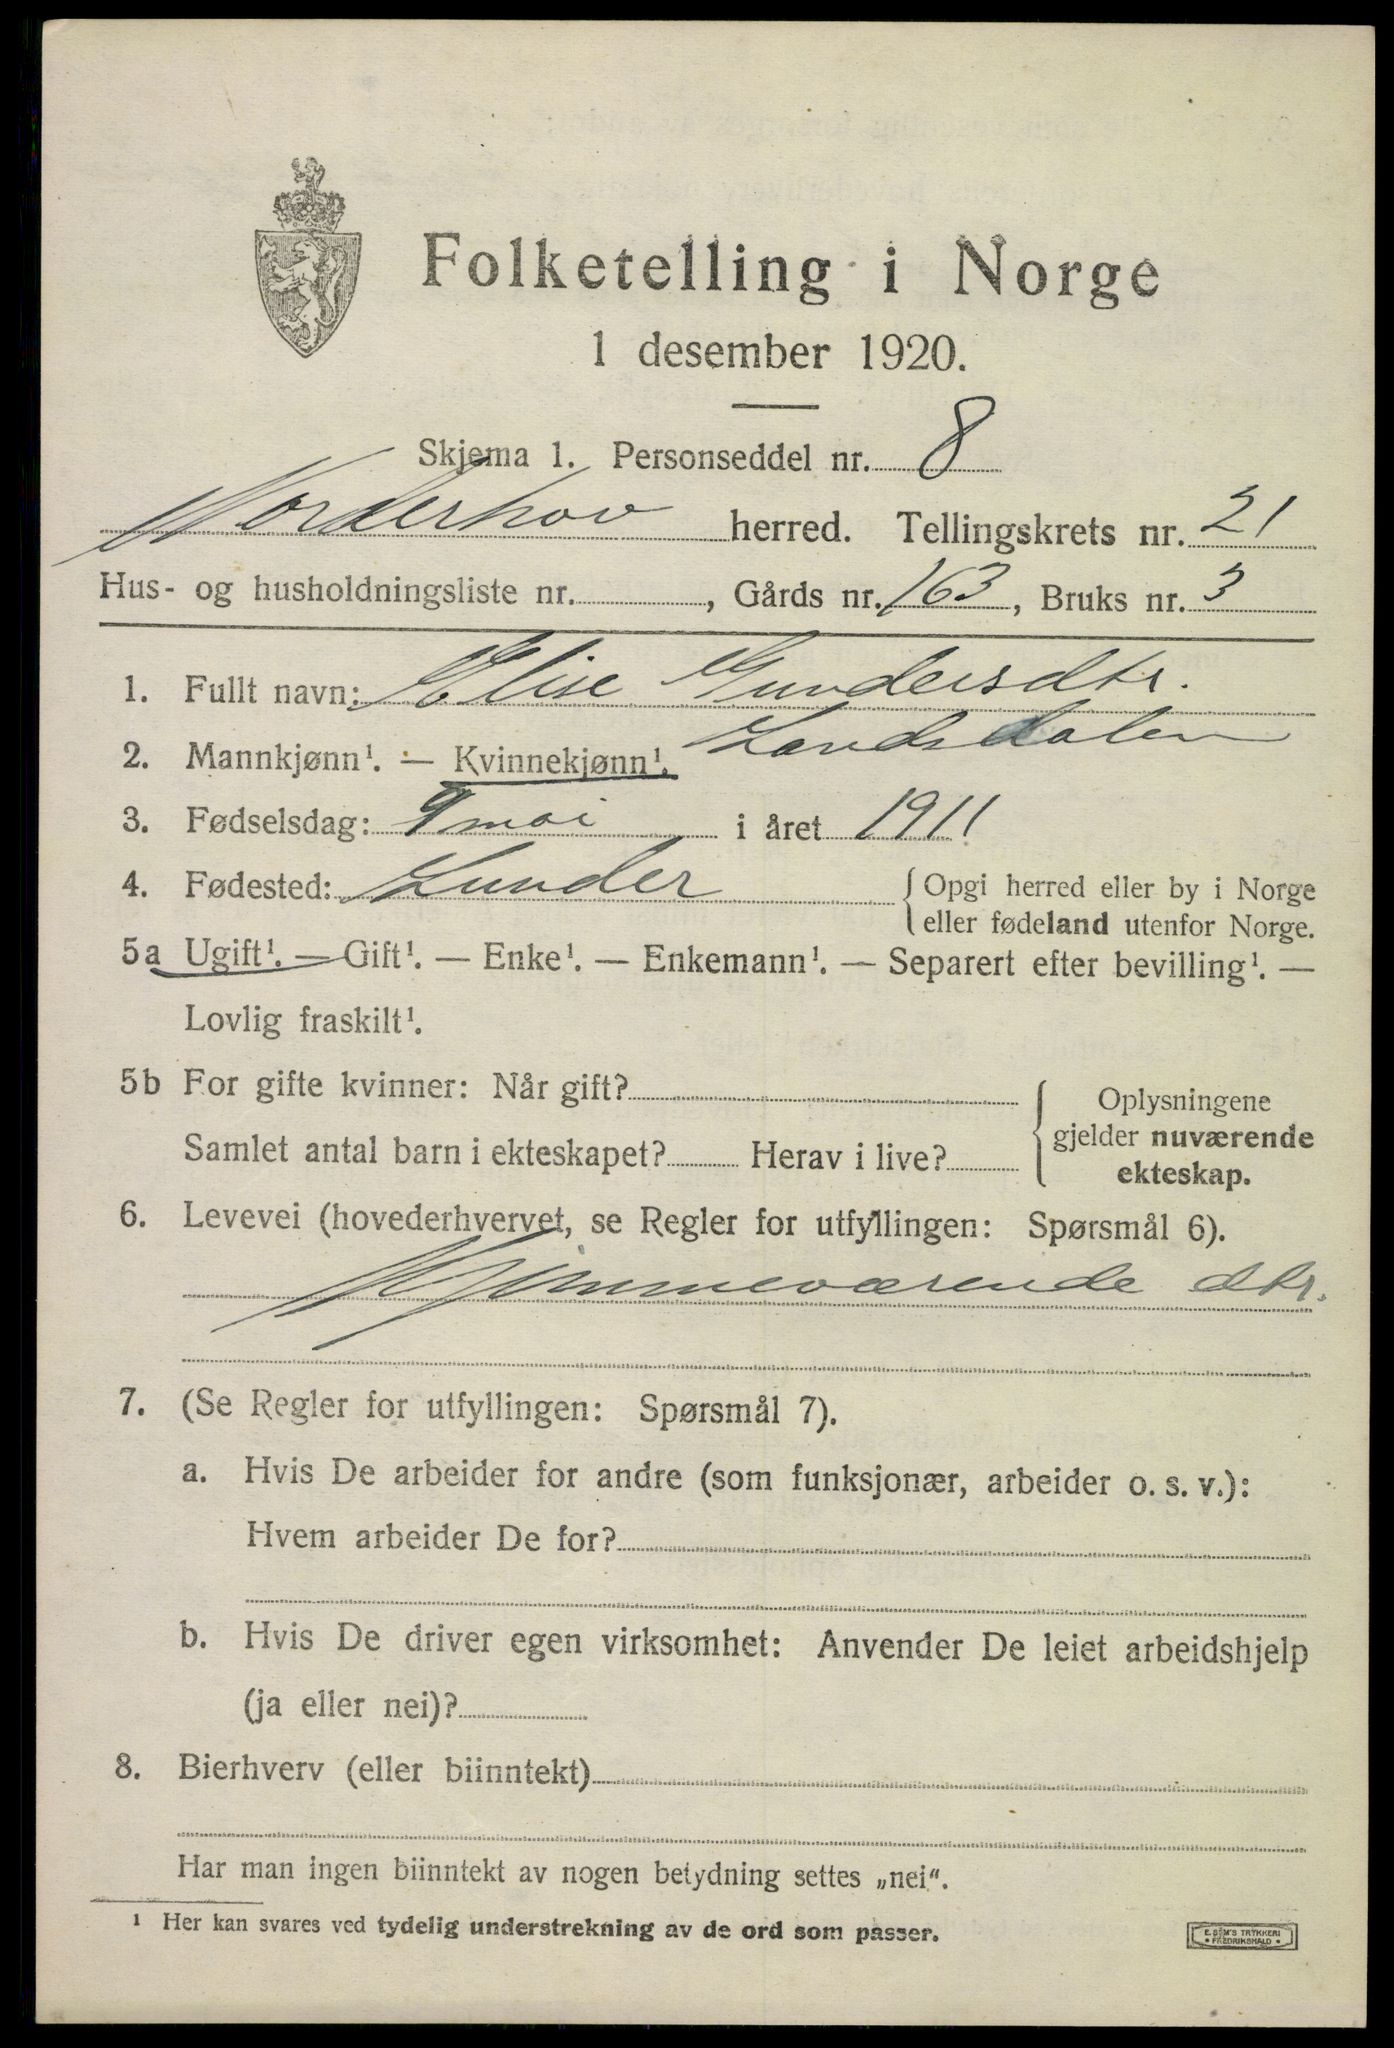 Folketelling i Norge
1 desember 1920.
Skjema 1. Personseddel nr. 8
Norderhov herred. Tellingskrets nr. 21
Hus- og husholdningsliste nr. , Gårds nr. 163, Bruks nr. 3
1. Fullt navn: Elise Gundersdtr.
Landsdalen
2. Mannkjønn¹. — Kvinnekjønn¹.
3. Fødselsdag: 9 mai i året 1911
4. Fødested: Lunder {Opgi herred eller by i Norge
eller fødeland utenfor Norge.
5a Ugift¹. — Gift¹. — Enke¹. — Enkemann¹. — Separert efter bevilling¹. —
Lovlig fraskilt¹.
5b For gifte kvinner: Når gift?
Samlet antal barn i ekteskapet? Herav i live?
{Oplysningene
gjelder nuværende
ekteskap.
6. Levevei (hovederhvervet, se Regler for utfyllingen: Spørsmål 6).
Hjemmeværende dtr.
7. (Se Regler for utfyllingen: Spørsmål 7).
a. Hvis De arbeider for andre (som funksjonær, arbeider o. s. v.):
Hvem arbeider De for?
b. Hvis De driver egen virksomhet: Anvender De leiet arbeidshjelp
(ja eller nei)?
8. Bierhverv (eller biinntekt)
Har man ingen biinntekt av nogen betydning settes „nei“.
¹ Her kan svares ved tydelig understrekning av de ord som passer.
E. SEM'S TRYKKERI
• FREDRIKSHALD •